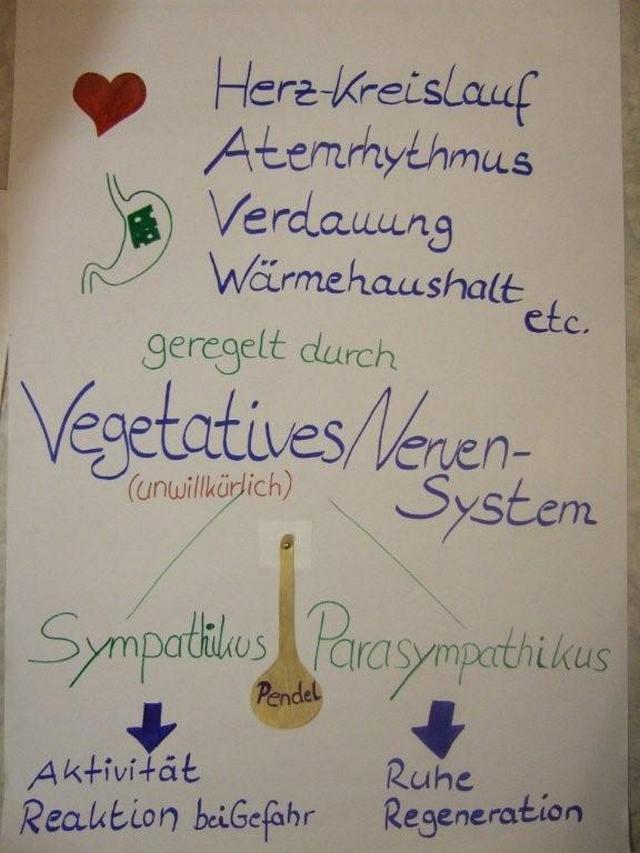 Herz-Kreislauf
Atemrhythmus
Verdauung
Wärmehaushalt
etc.
geregelt durch
Vegetatives Nerven-
(unwillkürlich)
System
Sympathikus Parasympathikus
Pendel
Aktivität
Reaktion bei Gefahr
Ruhe
Regeneration